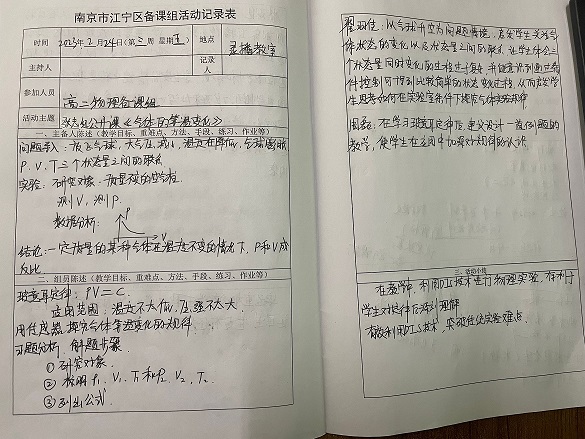 南京市江宁区备课组活动记录表
时间 2023年2月24日(第三周 星期五) 地点 录播教室
主持人 记录人
参加人员 高二物理备课组
活动主题 公开课《气体的等温变化》
一、主备人陈述（教学目标、重难点、方法、手段、练习、作业等）
问题导入：
P、V、T三个状态量之间的联系
实验：研究对象：一定质量的空气
测V，测P
数据分析：P V
结论：一定质量的某种气体在温度不变的情况下，P和V成
反比
二、组员陈述（教学目标、重难点、方法、手段、练习、作业等）
玻意耳定律：PV=C
适用范围：温度不太低，压强不太大
用传感器探究气体等温变化的规律
习题分析，解题步骤
①研究对象
②找明P₁、V₁、T₁和P₂、V₂、T₂
③列出公式
以气球升空为问题情境，启发学生关注气
体状态的变化以及状态量之间的联系，让学生体会三
个状态量同时变化的过程过于复杂，并能意识到通过条
件控制可得到比较简单的状态变化过程，从而启发学
生思考如何在实验室条件下探究气体实验规律
周磊：在学习玻意耳定律后，建议设计一道例题的
教学，使学生在应用中加深对规律的认识
三、活动小结
在教学中，利用DIS技术进行物理实验，有利于
学生对规律的深刻理解
积极利用DIS技术，突破传统实验难点